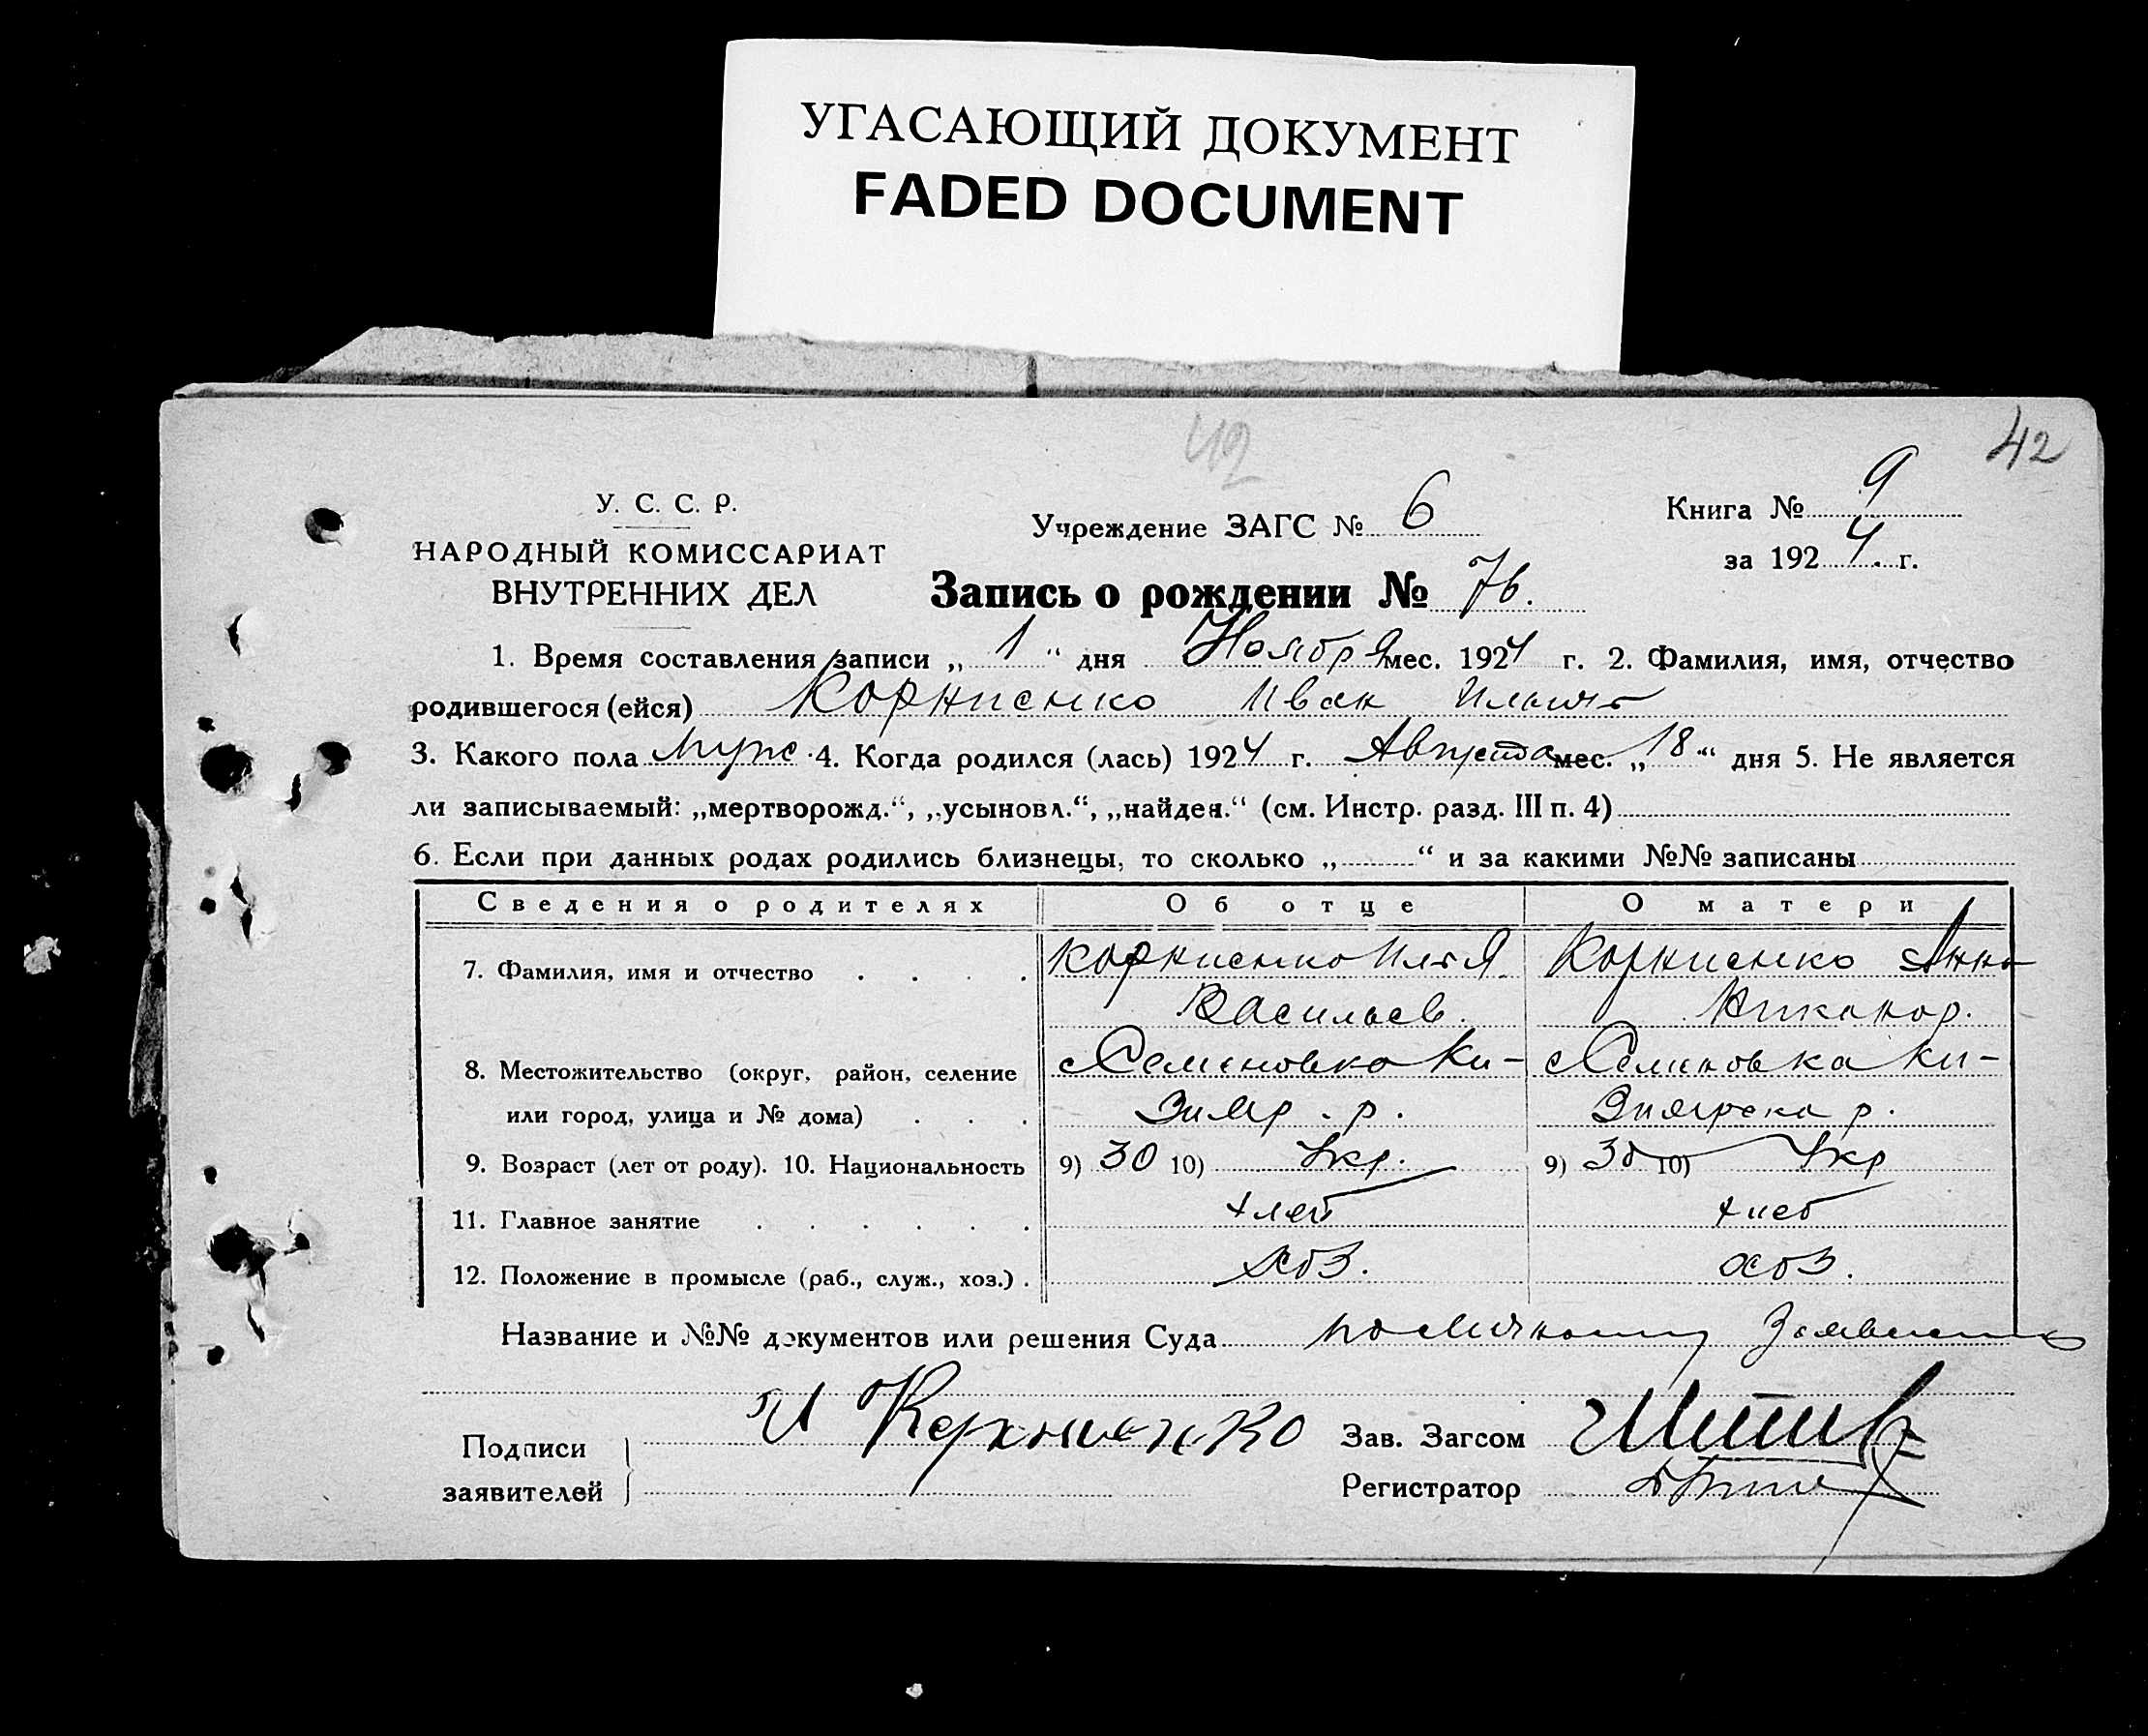 УГАСАЮЩИЙ ДОКУМЕНТ
FADED DOCUMENT
42
42
У. С. С. Р.
НАРОДНЫЙ КОМИССАРИАТ
ВНУТРЕННИХ ДЕЛ
Учреждение ЗАГС № 6
Книга № 9
за 1924 г.
Запись о рождении № 76.
1. Время составления записи „ 1 “ дня Ноября мес. 1924 г. 2. Фамилия, имя, отчество
родившегося (ейся) Корниенко Иван
3. Какого пола муж 4. Когда родился (лась) 1924 г. Августа мес. „ 18 “ дня 5. Не является
ли записываемый: „мертворожд.“, „усыновл.“, „найден.“ (см. Инстр. разд. III п. 4)
6. Если при данных родах родились близнецы, то сколько „ “ и за какими №№ записаны
Сведения о родителях Об отце О матери
7. Фамилия, имя и отчество Корниенко Илья Корниенко Анна
Васильев. Никанор.
8. Местожительство (округ, район, селение с Семеновка Ки- с Семеновка Ки-
или город, улица и № дома)
9. Возраст (лет от роду). 10. Национальность 9) 30 10) Укр. 9) 30 10) Укр
11. Главное занятие
12. Положение в промысле (раб., служ., хоз.) хоз. хоз.
Название и №№ документов или решения Суда по личному
Подписи заявителей И Корниенко
Зав. Загсом
Регистратор